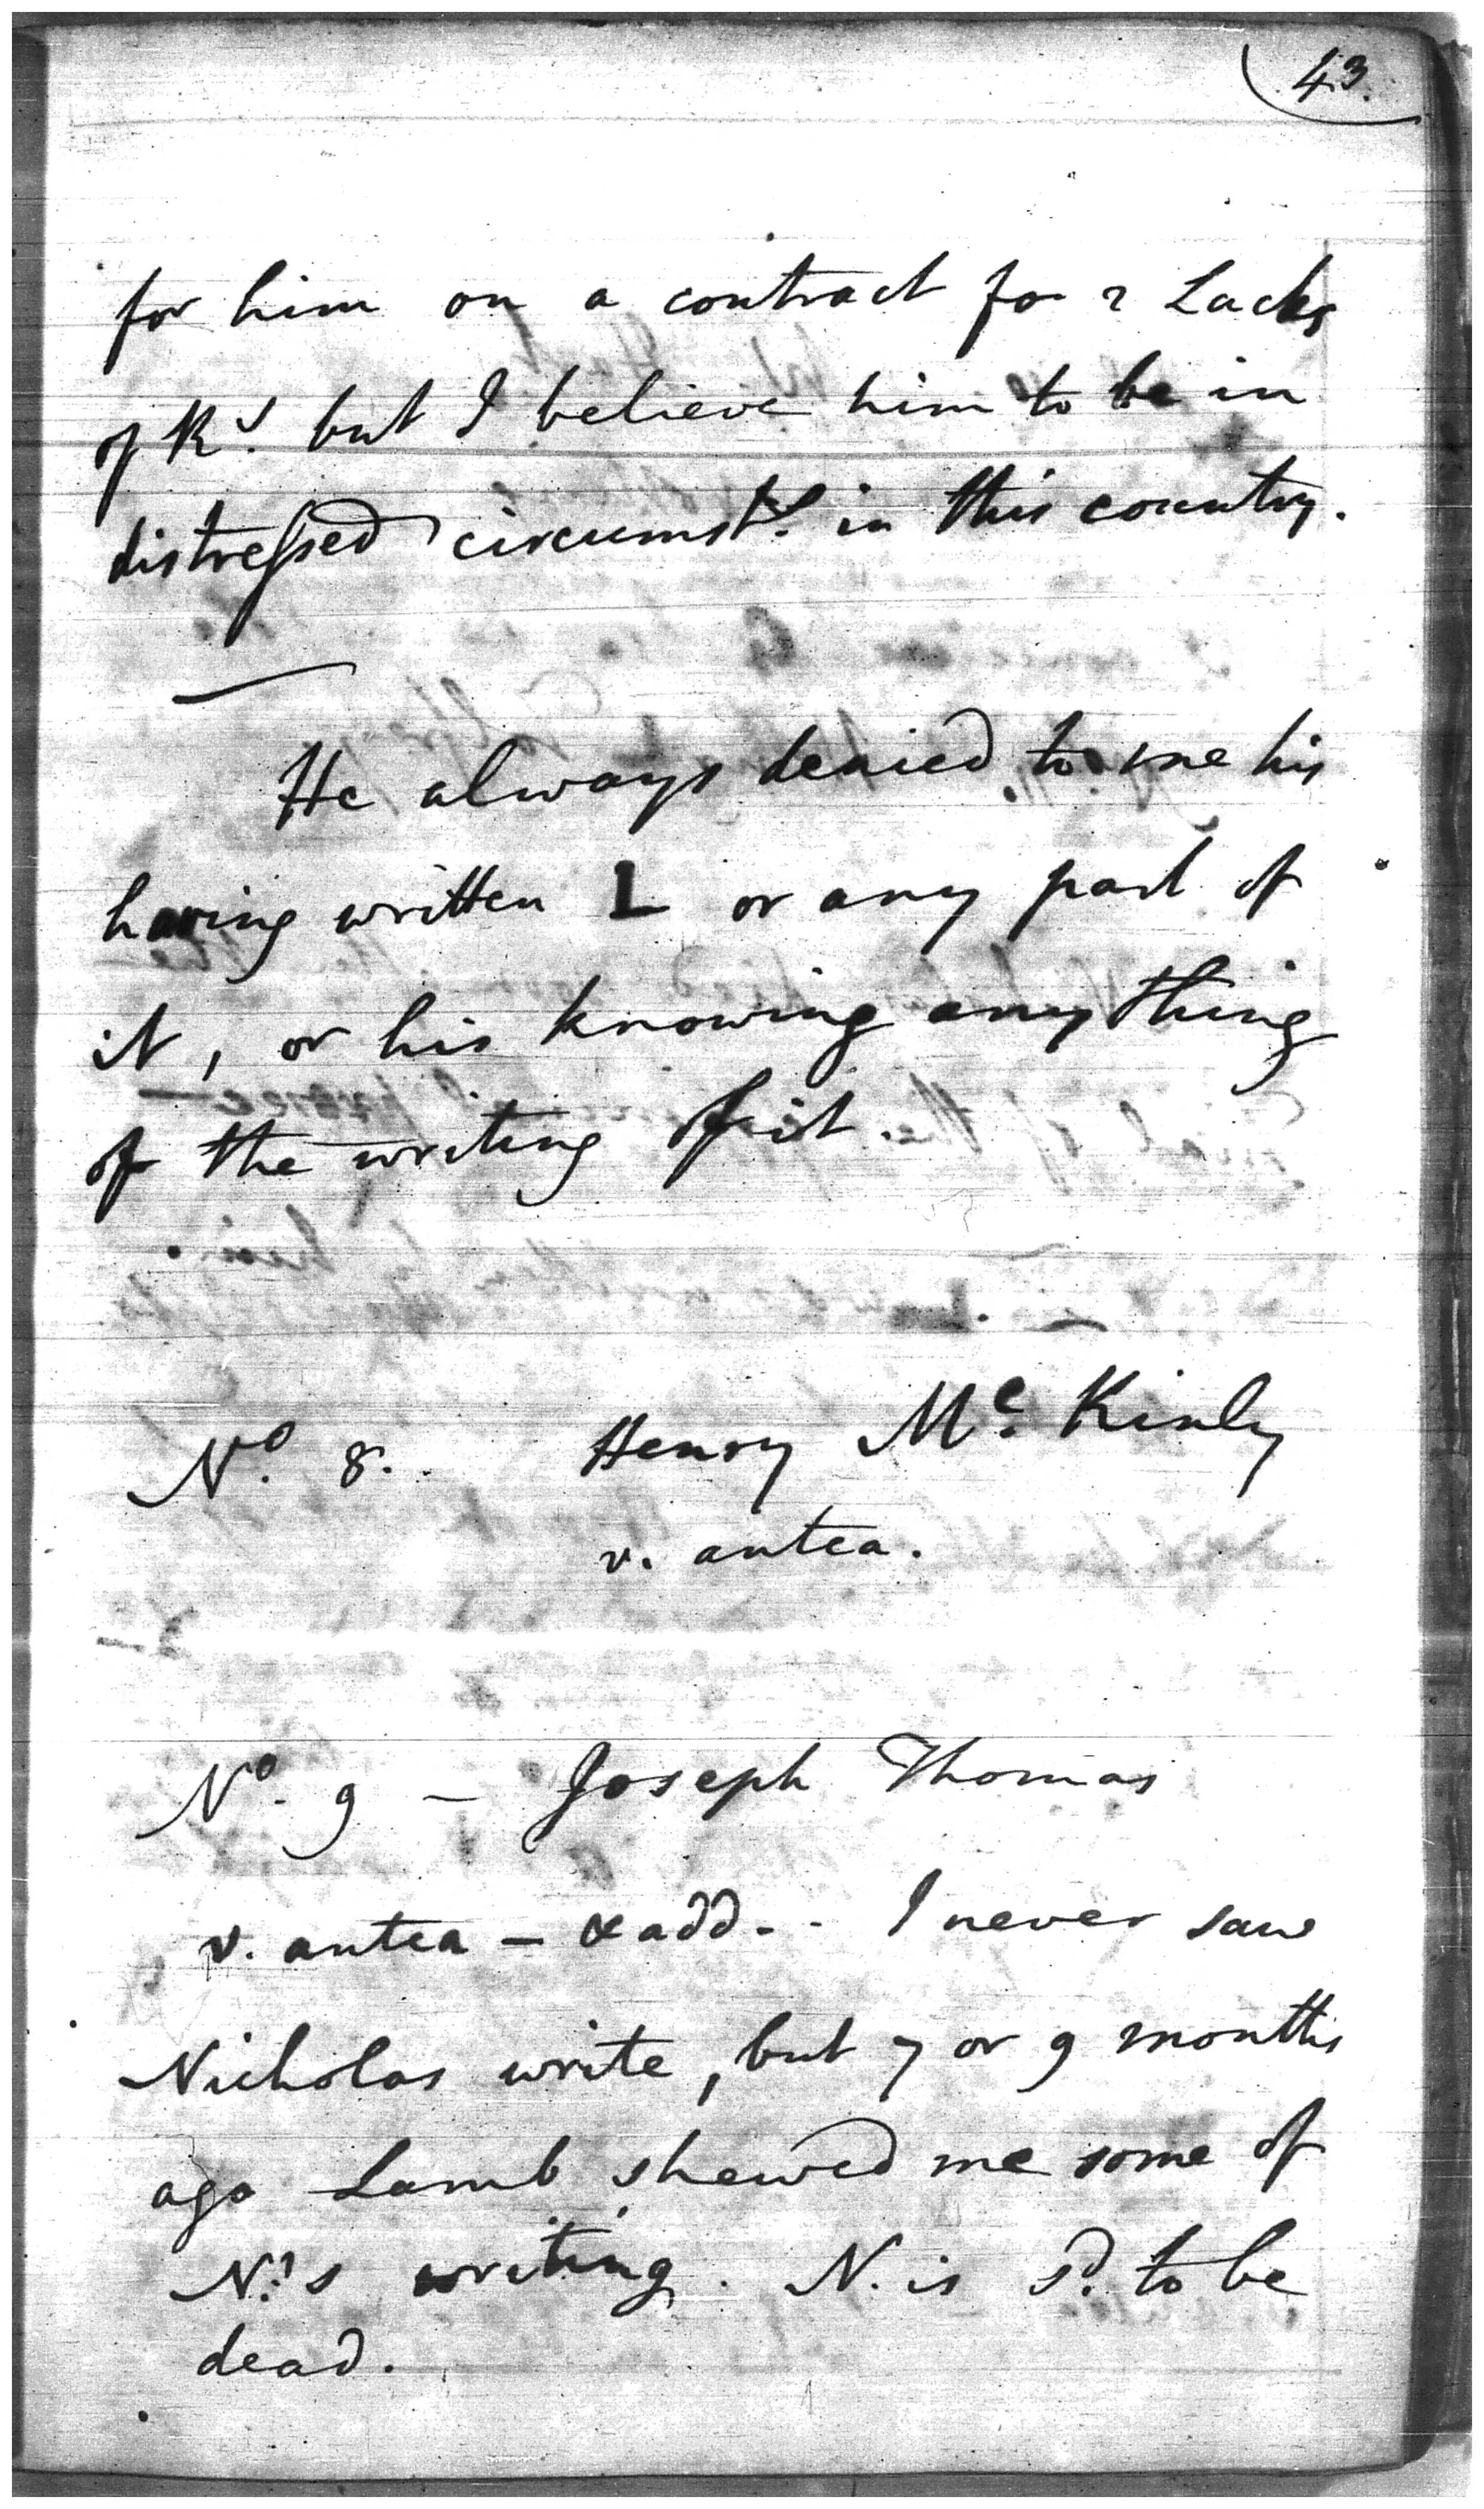 43.
for him on a contract for 2 Lacks
of Rs. but I believe him to be in
distressed circumsts. in this country.
He always denied to me his
having written L or any part of
it, or his knowing any thing
of the writing of it.
No. 8. Henry Mc. Kinly
v. antea.
No. 9 — Joseph Thomas
v. antea — & add. - I never saw
Nicholas write, but 7 or 9 months
ago Lamb shewed me some of
N.'s writing. N. is sd. to be
dead.